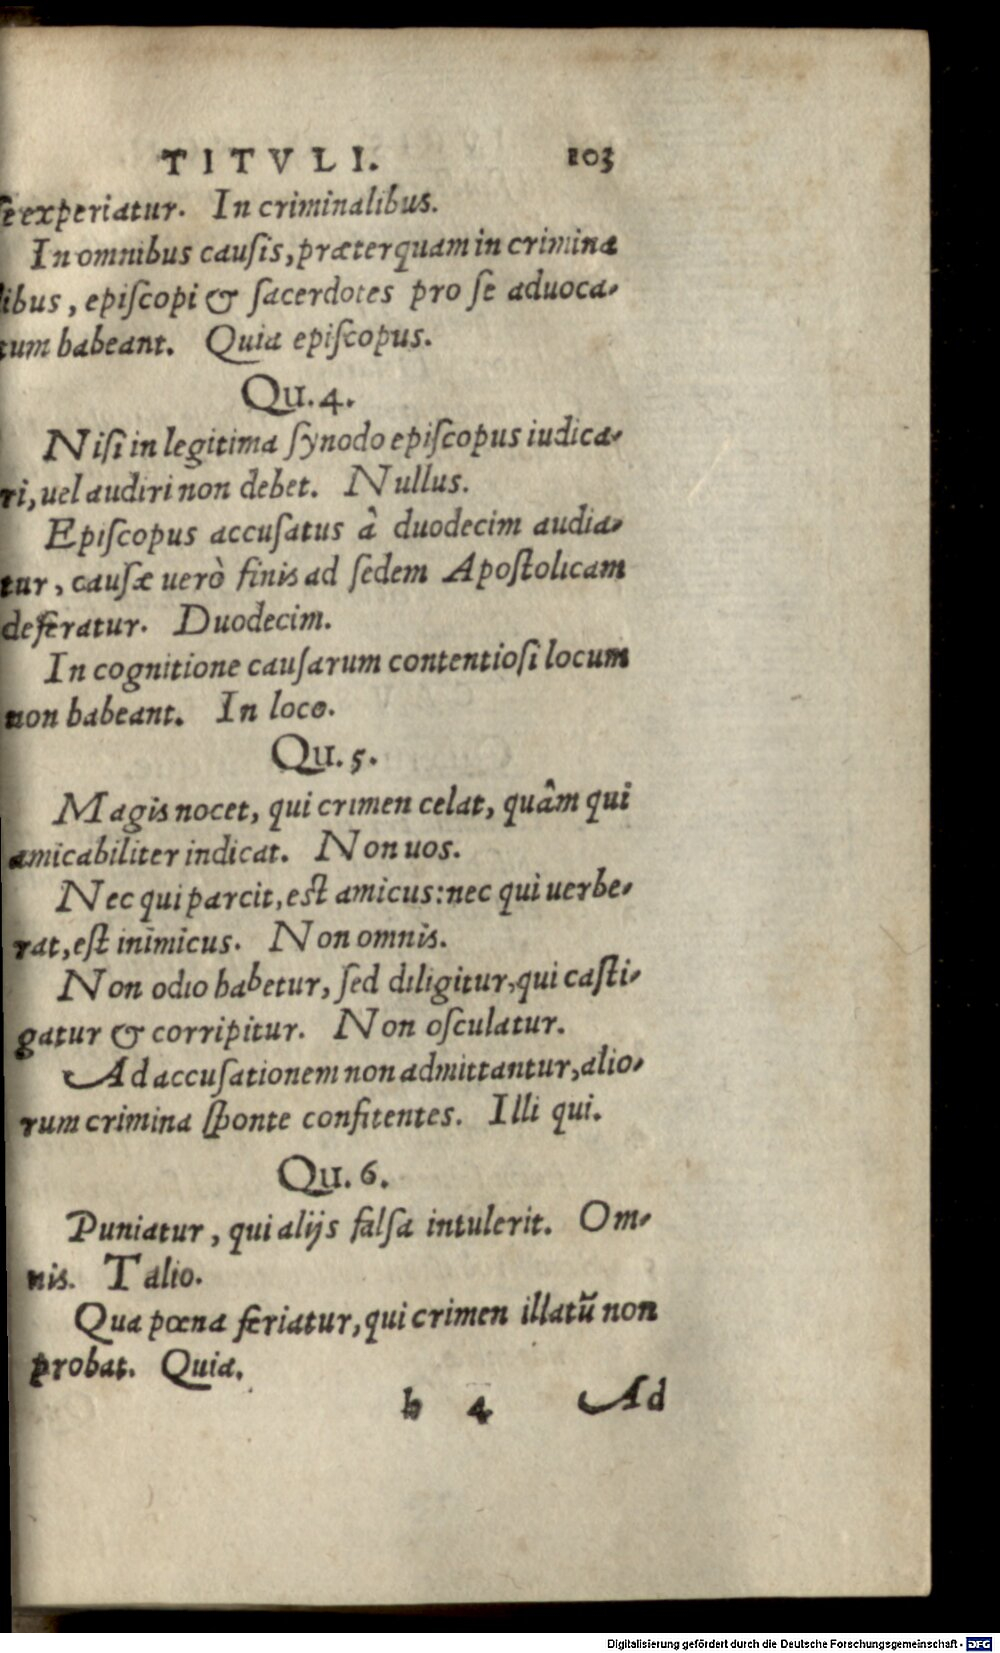 TITVLI. 103
ſe experiatur. In criminalibus.
In omnibus cauſis, præterquam in crimina
libus, epiſcopi & ſacerdotes pro ſe aduoca-
tum habeant. Quia epiſcopus.
Qu. 4.
Niſi in legitima ſynodo epiſcopus iudica-
ri, uel audiri non debet. Nullus.
Epiſcopus accuſatus â duodecim audia-
tur, cauſæ uerò finis ad ſedem Apoſtolicam
deferatur. Duodecim.
In cognitione cauſarum contentioſi locum
non habeant. In loco.
Qu. 5.
Magis nocet, qui crimen celat, quâm qui
amicabiliter indicat. Non uos.
Nec qui parcit, eſt amicus: nec qui uerbe-
rat, eſt inimicus. Non omnis.
Non odio habetur, ſed diligitur, qui caſti-
gatur & corripitur. Non oſculatur.
Ad accuſationem non admittantur, alio-
rum crimina ſponte confitentes. Illi qui.
Qu. 6.
Puniatur, qui alijs falſa intulerit. Om-
nis. Talio.
Qua pœna feriatur, qui crimen illatū non
probat. Quia.
h 4 Ad
Digitalisierung gefördert durch die Deutsche Forschungsgemeinschaft - DFG